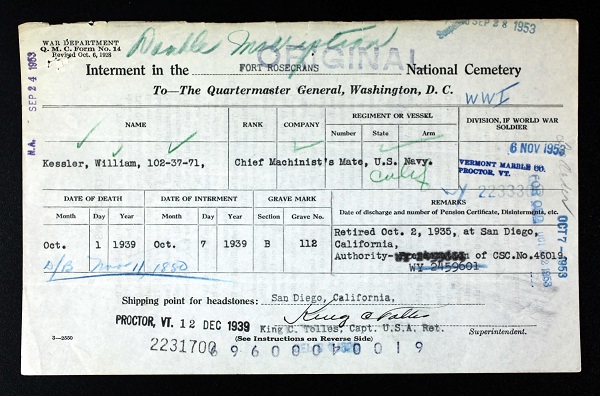 WAR DEPARTMENT
Q. M. C. Form No. 14
Revised Oct. 6, 1928
SEP 28 1953
Double Inscription
ORIGINAL
Interment in the FORT ROSECRANS National Cemetery
To—The Quartermaster General, Washington, D. C.
N.A. SEP 24 1953
WWI
NAME RANK COMPANY REGIMENT OR VESSEL DIVISION, IF WORLD WAR SOLDIER
Number State Arm
6 NOV 1953
Kessler, William, 102-37-71, Chief Machinist's Mate, U.S. Navy.
Calif
VERMONT MARBLE CO.
PROCTOR, VT.
DATE OF DEATH DATE OF INTERMENT GRAVE MARK REMARKS
Month Day Year Month Day Year Section Grave No. Date of discharge and number of Pension Certificate, Disinterments, etc.
Oct. 1 1939 Oct. 7 1939 B 112
Retired Oct. 2, 1935, at San Diego,
California,
Authority- of CSC.No.46019.
WY 2459601
D/B Nov 11, 1880
OCT 7-1953
Shipping point for headstones: San Diego, California,
PROCTOR, VT. 12 DEC 1939
King C. Tolles, Capt. U.S.A. Ret.
Superintendent.
(See Instructions on Reverse Side)
3—2550
2231700